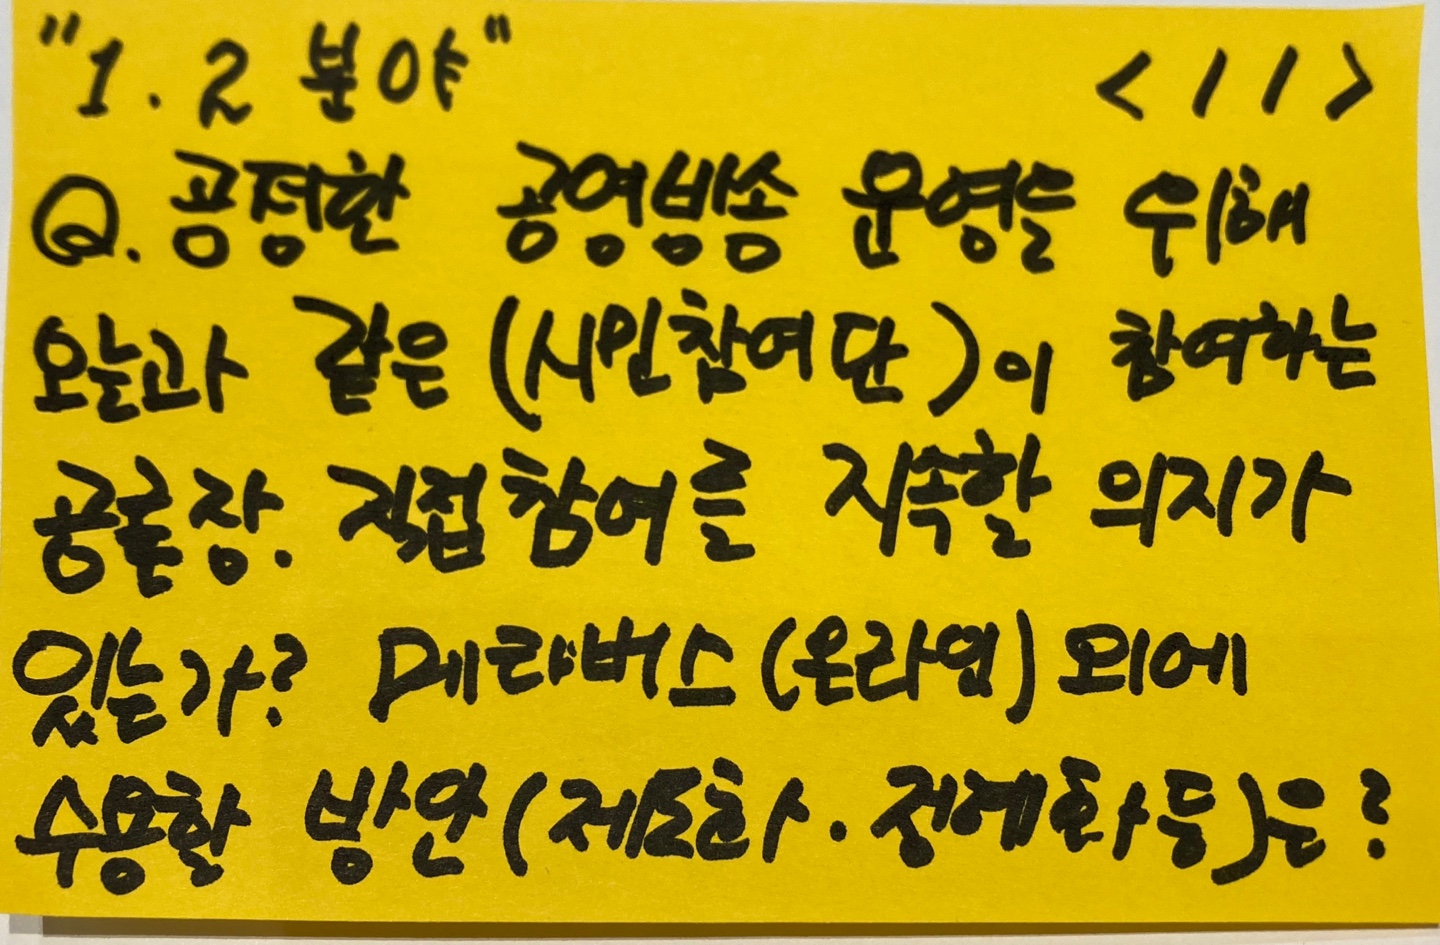 "1. 2 분야" <11>
Q. 공정한 공영방송 운영을 위해
오늘과 같은 (시민참여단)이 참여하는
공론장. 직접참여를 지속할 의지가
있는가? 메타버스(온라인) 외에
수용할 방안(제도화. 정례화 등)은?